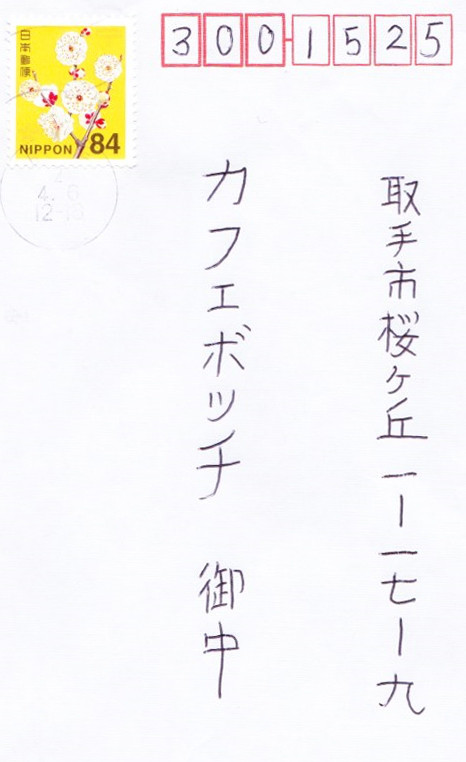 日本郵便
NIPPON 84
4. 6
300-1525
取手市桜ヶ丘一ー一七ー九
カフェボッチ 御中